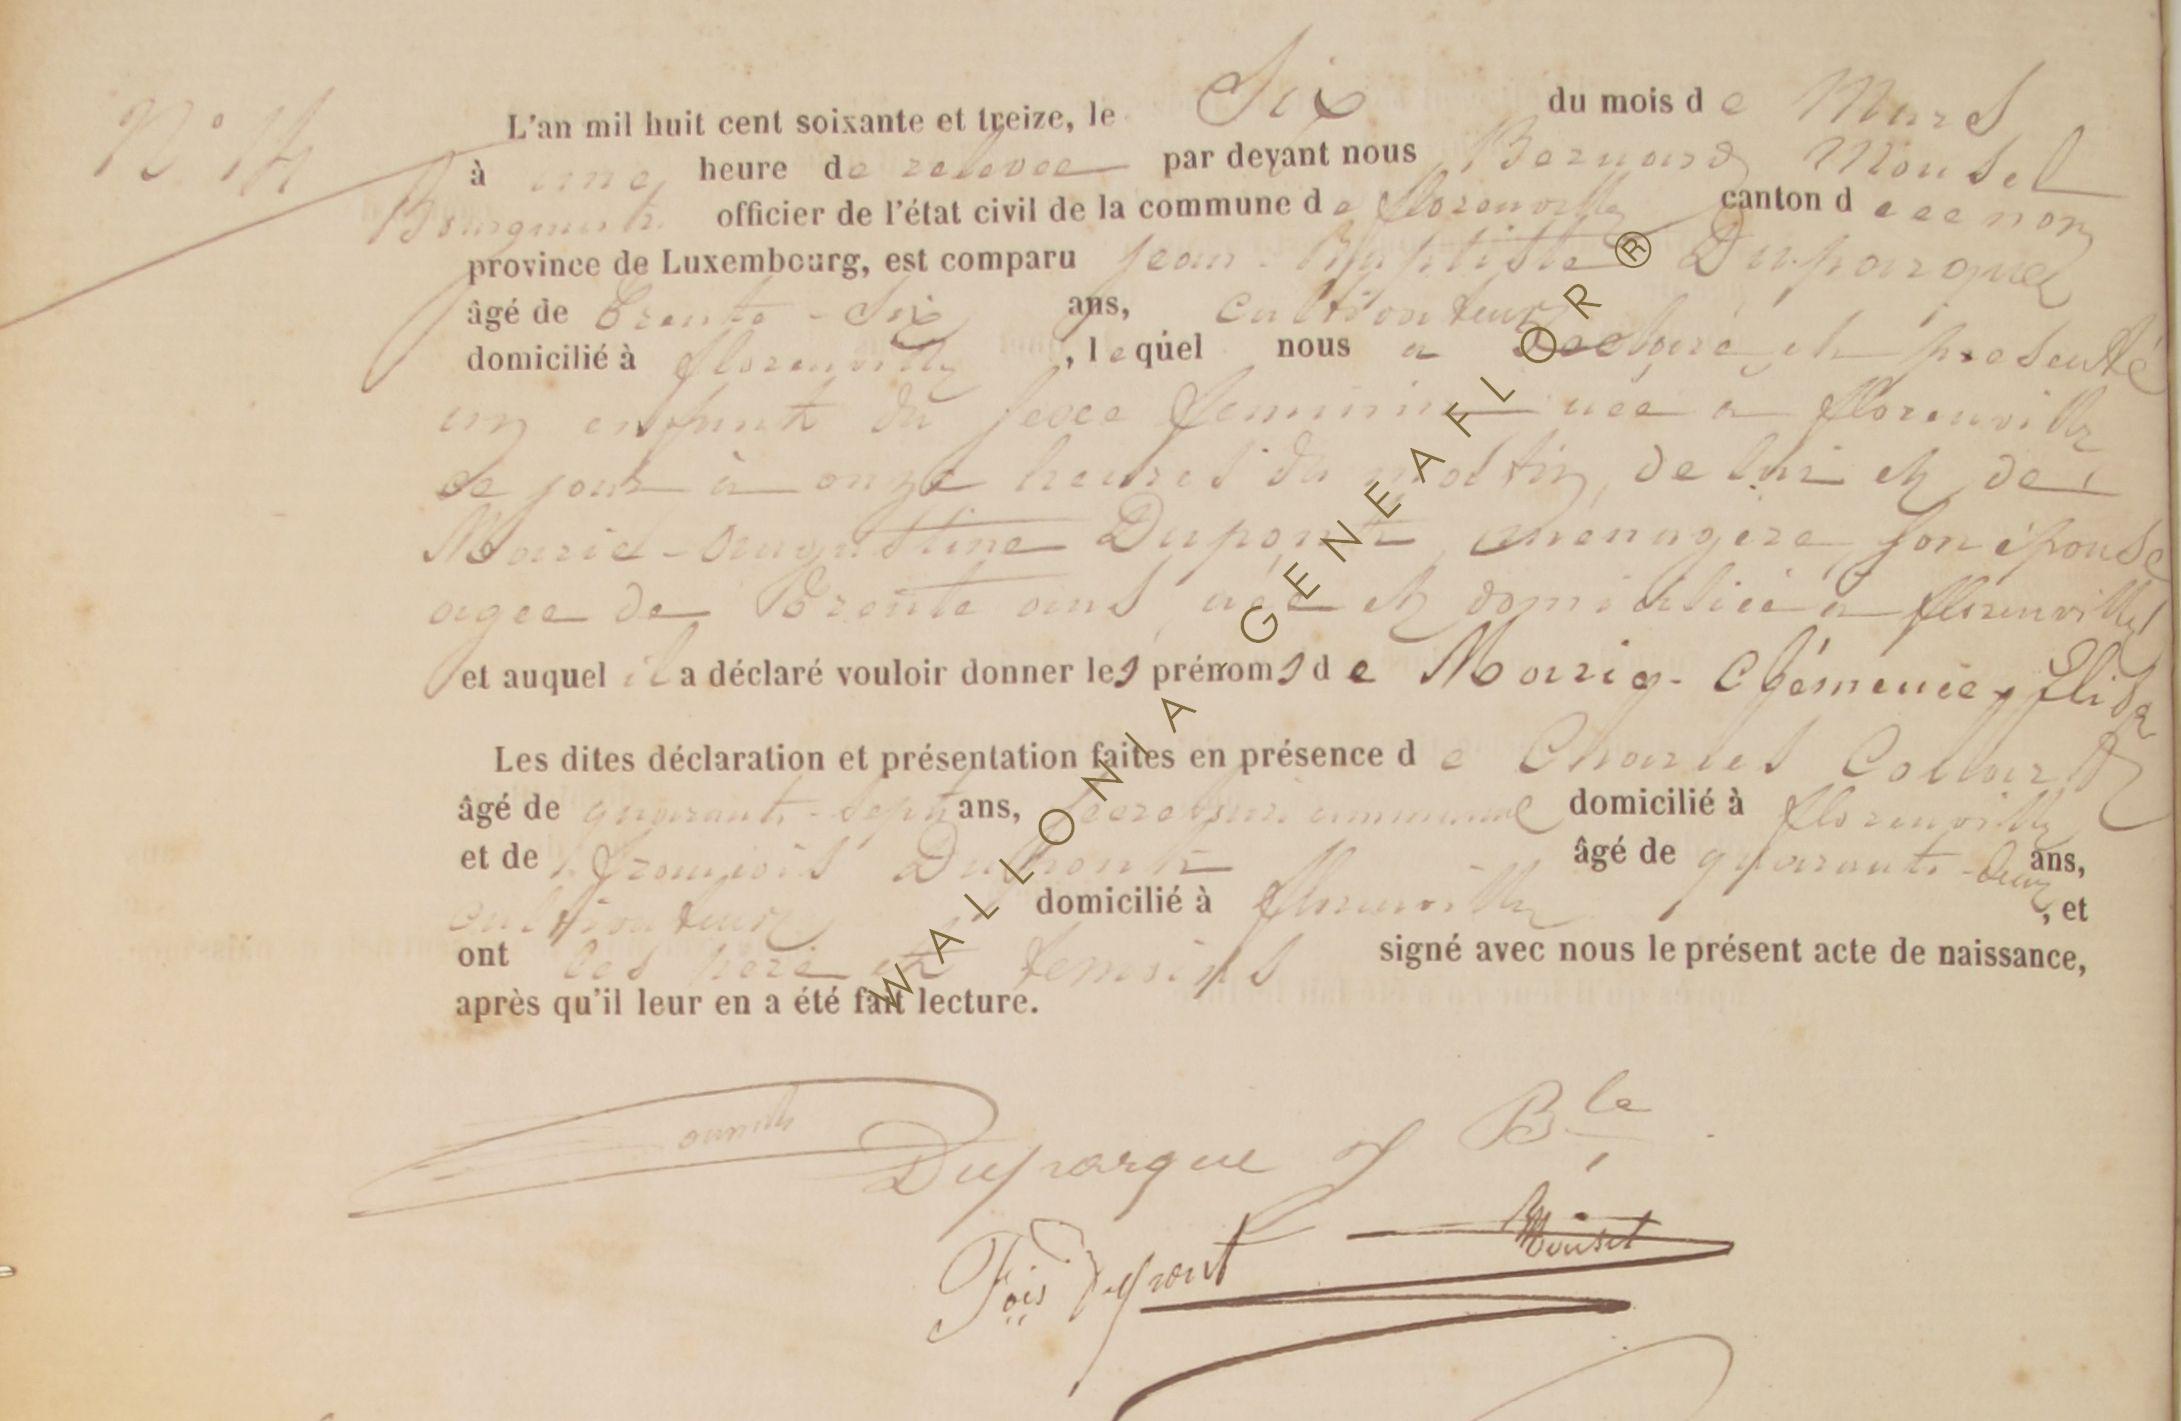 N° 14
L'an mil huit cent soixante et treize, le Six du mois de Mars
à une heure de relevée par devant nous Bernard Mousel
Bourgmestre officier de l'état civil de la commune de florenville canton d
province de Luxembourg, est comparu Jean-Baptiste Duparque
âgé de Trente-Six ans, Cultivateur
domicilié à florenville, lequel nous a declaré et presenté
un enfant du sexe feminin née à florenville
ce jour à onze heures du matin, de lui et de
Marie-Augustine Dupont, ménagère, son épouse
agee de Trente ans, née et domiciliée à florenville
et auquel il a déclaré vouloir donner les prénoms de Marie-Ghémenie, Elisa
Les dites déclaration et présentation faites en présence de Charles Collard
âgé de quarante-sept ans, secretaire communal domicilié à florenville
et de françois Dupont âgé de quarante-deux ans,
cultivateur domicilié à florenville, et
ont les père et temoins signé avec nous le présent acte de naissance,
après qu'il leur en a été fait lecture.
Duparque J Bte
Fois Dupont
B. Mousel
WALLONIA GENEAFLOR®